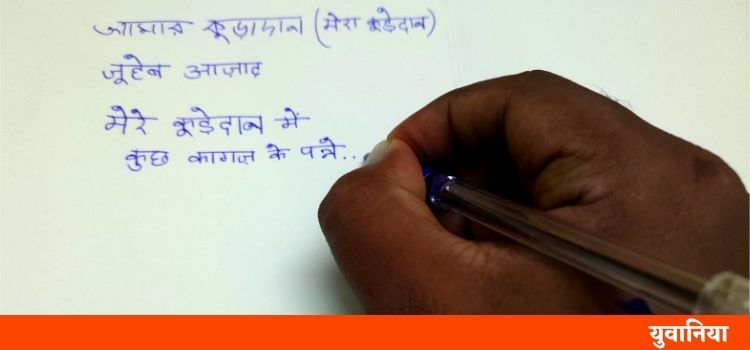 আমার কূড়াদান (मेरा कूड़ेदान)
जूहेब आज़ाद
मेरे कूड़ेदान में
कुछ कागज़ के पन्ने..
युवानिया